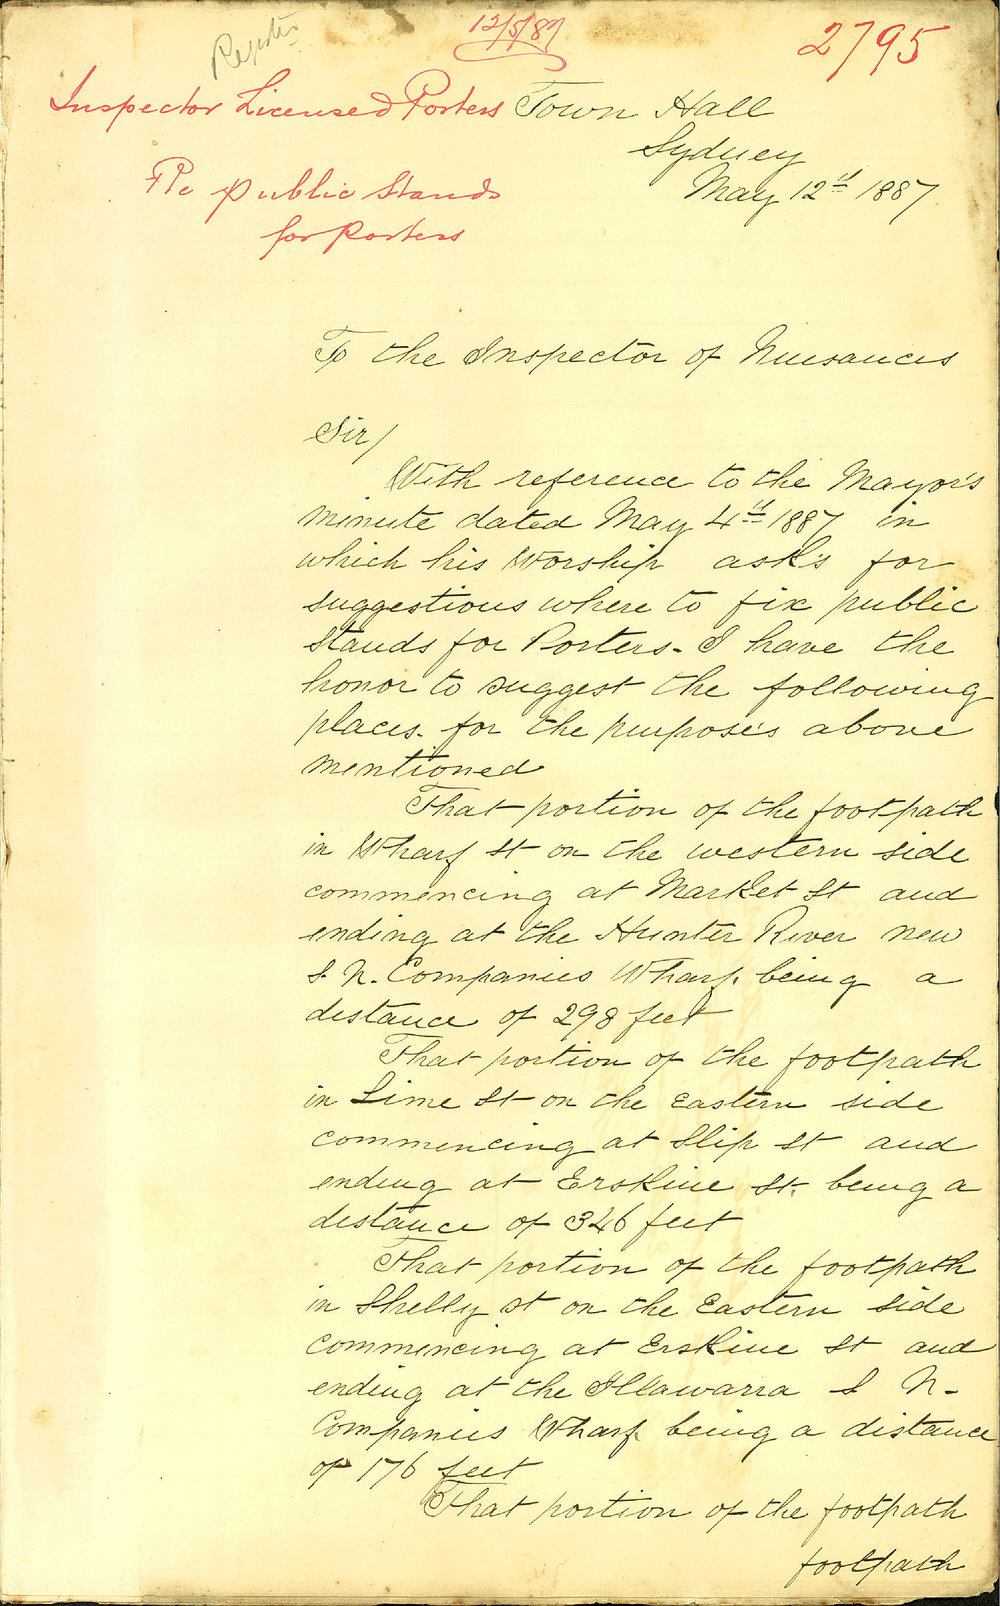 Register
12/5/87
2795
Inspector Licensed Porters
Re public Stands
for Porters
Town Hall
Sydney
May 12th 1887
To the Inspector of Nuisances
Sir/
With reference to the Mayor's
minute dated May 4th 1887 in
which his Worship ask's for
suggestions where to fix public
Stands for Porters - I have the
honor to suggest the following
places. for the purpose's above
mentioned
That portion of the footpath
in Wharf St on the western side
commencing at Market St and
ending at the Hunter River new
S. N. Companies Wharf. being a
distance of 298 feet
That portion of the footpath
in Lime St on the Eastern side
commencing at Slip St and
ending at Erskine St. being a
distance of 346 feet
That portion of the footpath
in Shelly St on the Eastern side
commencing at Erskine St and
ending at the Illawarra S N-
Companies Wharf being a distance
of 176 feet
That portion of the footpath
footpath